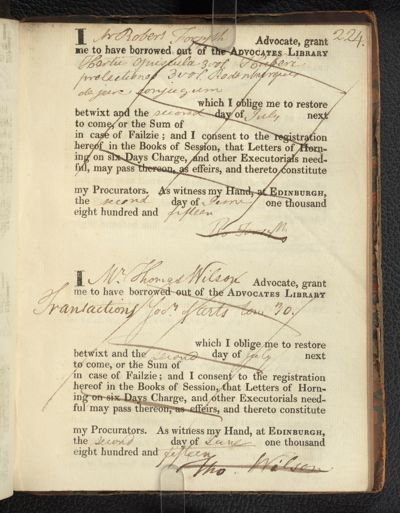 224.
I Mr Robert Forsyth Advocate, grant
me to have borrowed out of the ADVOCATES LIBRARY
opuscula 3 vol
3 vol Rodenburgius
de jure conjugum
which I oblige me to restore
betwixt and the second day of July next
to come, or the Sum of
in case of Failzie; and I consent to the registration
hereof in the Books of Session, that Letters of Horn-
ing on six Days Charge, and other Executorials need-
ful, may pass thereon, as effeirs, and thereto constitute
my Procurators. As witness my Hand, at EDINBURGH,
the second day of June one thousand
eight hundred and fifteen
Ro Forsyth
I Mr. Thomas Wilson Advocate, grant
me to have borrowed out of the ADVOCATES LIBRARY
Transactions Socy. of Arts vol 30.
which I oblige me to restore
betwixt and the second day of July next
to come, or the Sum of
in case of Failzie; and I consent to the registration
hereof in the Books of Session, that Letters of Horn-
ing on six Days Charge, and other Executorials need-
ful may pass thereon, as effeirs, and thereto constitute
my Procurators. As witness my Hand, at EDINBURGH,
the second day of June one thousand
eight hundred and fifteen
Tho. Wilson